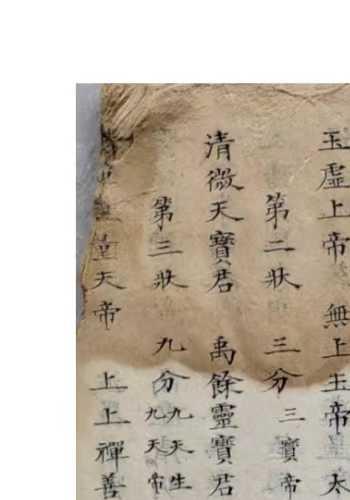 玉虛上帝 無上玉帝 太
第二狀 三分 三寶帝
清微天寶君 禹餘靈寶君
第三狀 九分 九天生 九天帝
量天帝 上上禪善